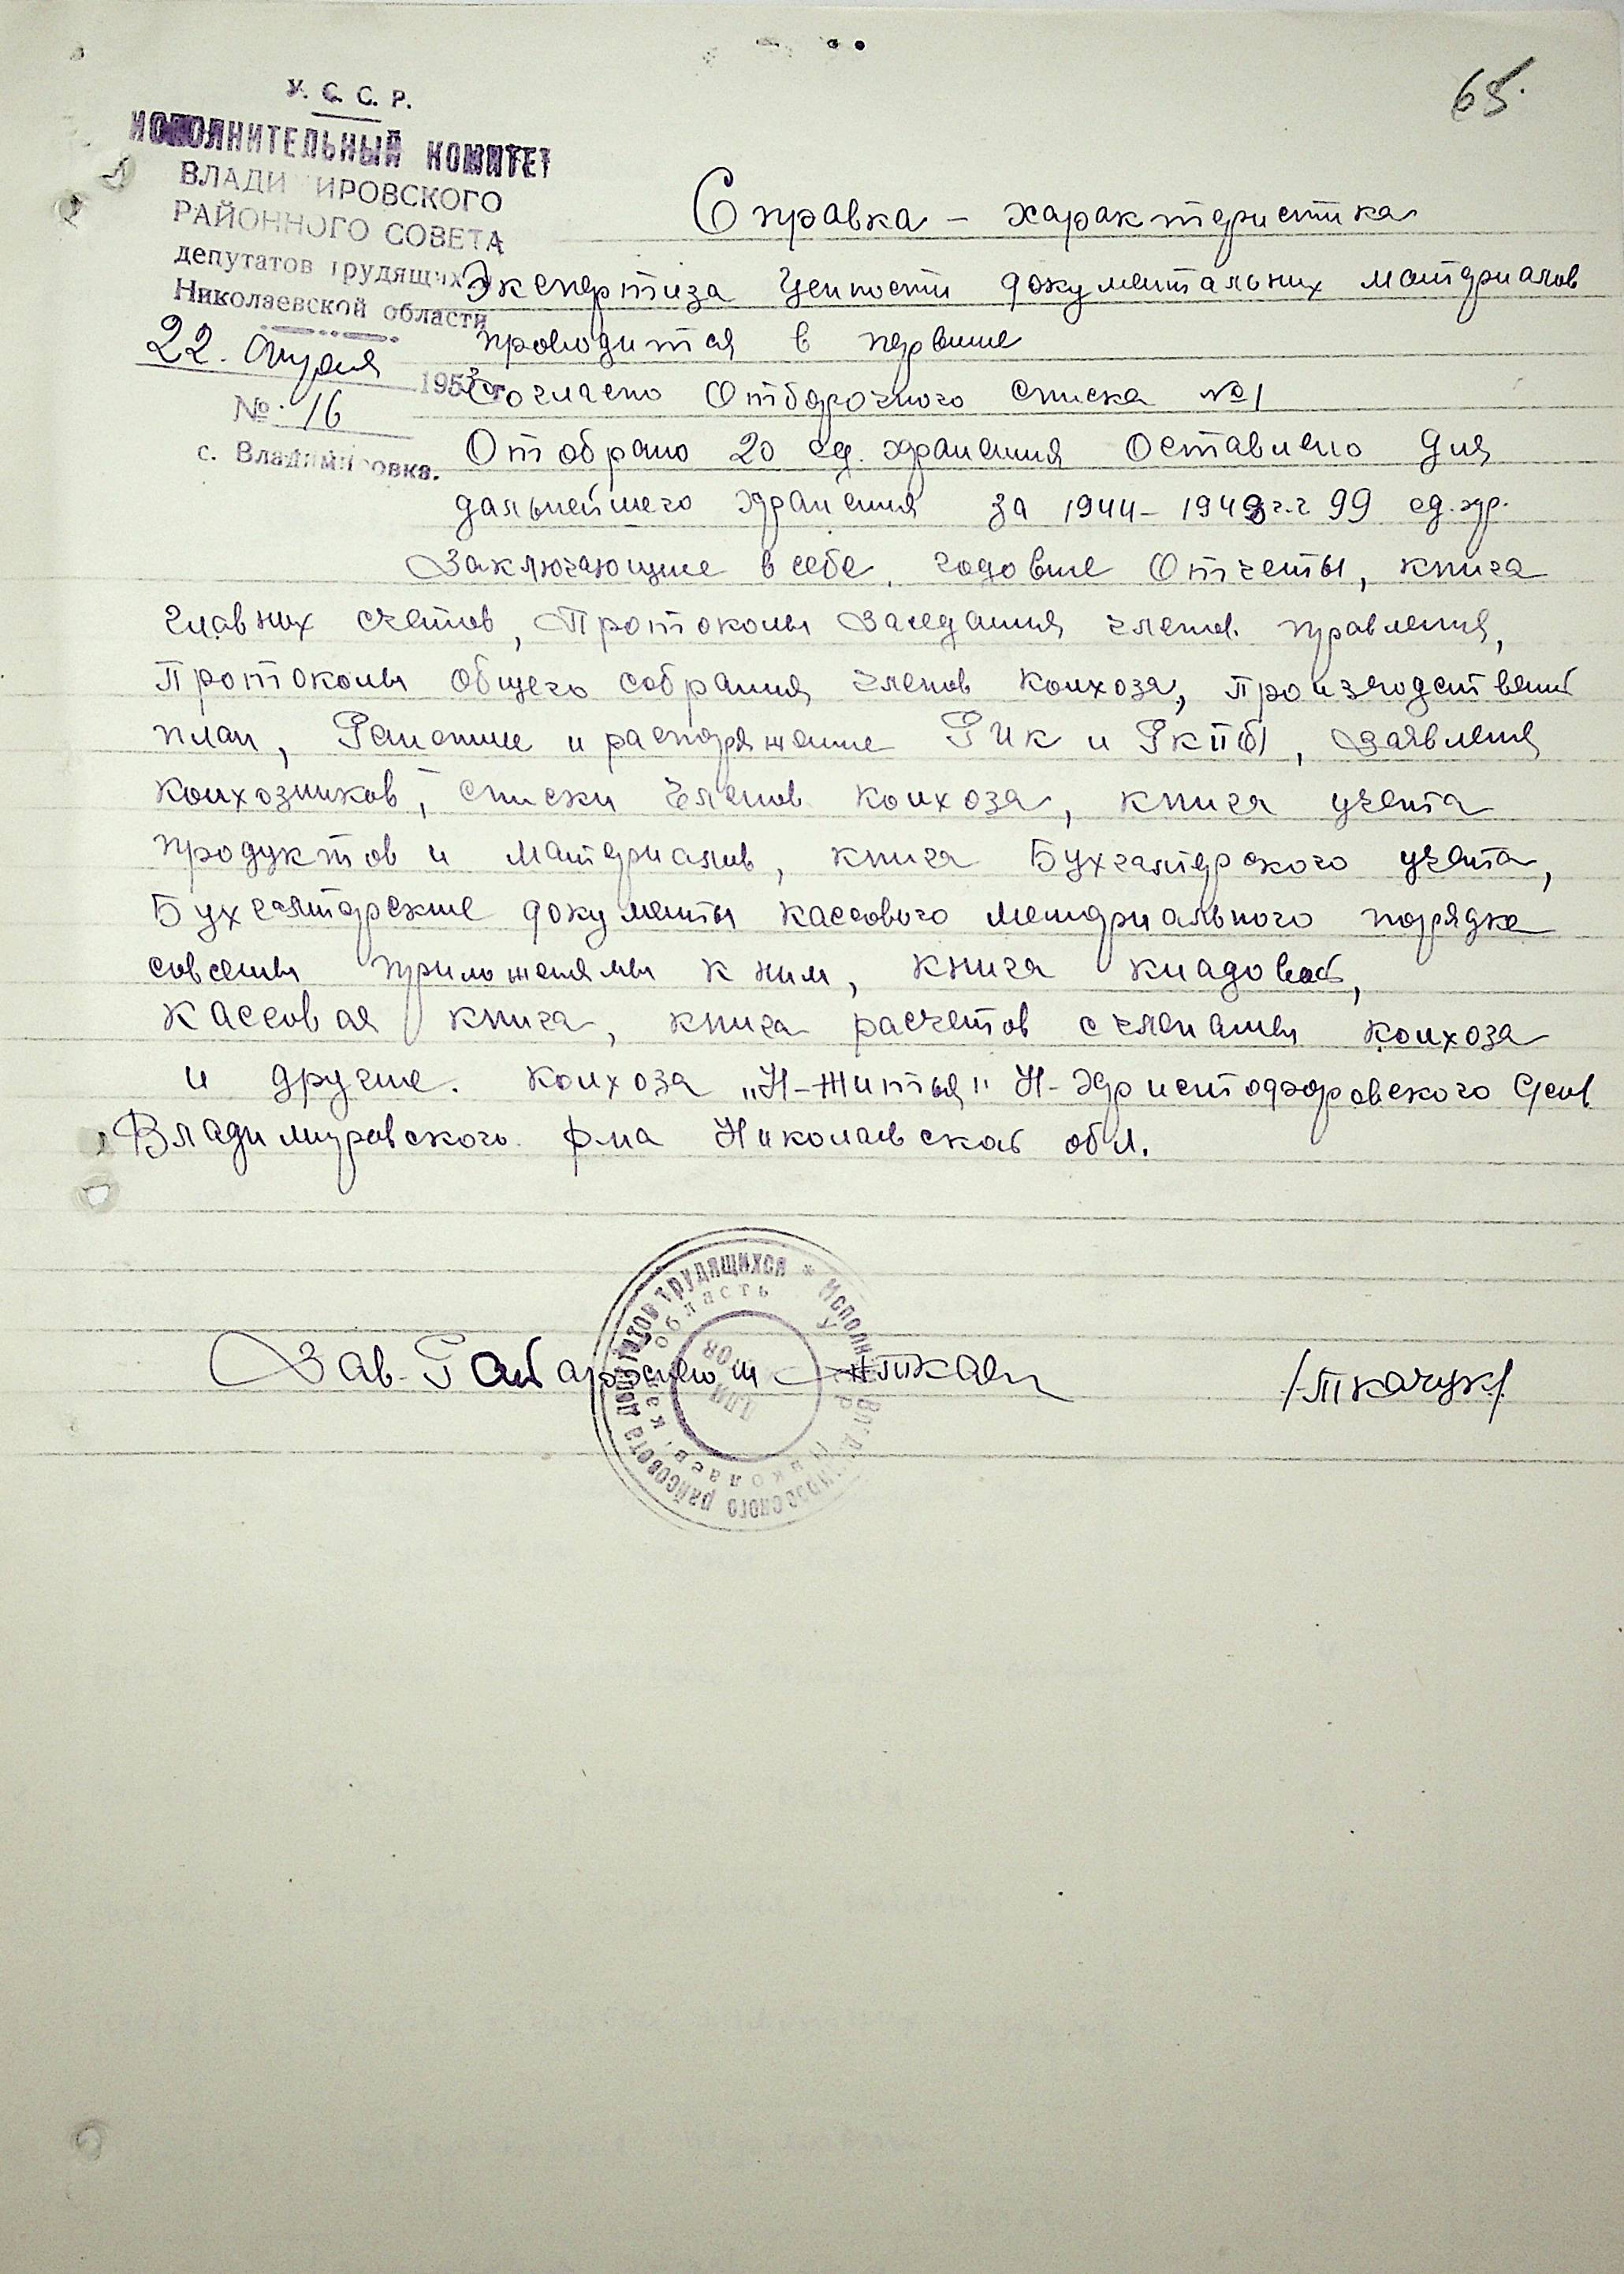 65.
У. С. С. Р.
ИСПОЛНИТЕЛЬНЫЙ КОМИТЕТ
ВЛАДИМИРОВСКОГО
РАЙОННОГО СОВЕТА
депутатов трудящихся
Николаевской области
22. апреля 1953 г.
№ 16
с. Владимировка.
Справка – характеристика
Экспертиза ценности документальных материалов
проводится в первые
Согласно Отборочного списка №1
Отобрано 20 ед. хранения Оставлено для
дальнейшего хранения за 1944 – 1949 г.г 99 ед. хр.
Заключающие в себе, годовые Отчеты, книга
главных счетов, Протоколы Заседания членов правления,
Протоколы общего собрания членов колхоза,
план, и распоряжение РИК и РКПб), Заявления
колхозников, списки членов колхоза, книга учета
продуктов и материалов, книга Бухгалтерского учета,
Бухгалтерские документы кассового порядка
совсемы к ним, книга кладовой,
Кассовая книга, книга расчетов счленамы колхоза
и другие. колхоза „Н-Життя" Н-Христофоровского с/сов.
Владимировского р-на Николаевской обл.
Зав. /Ткачук/
Исполн Владимировского райсовета депутатов трудящихся *
Николаевская область